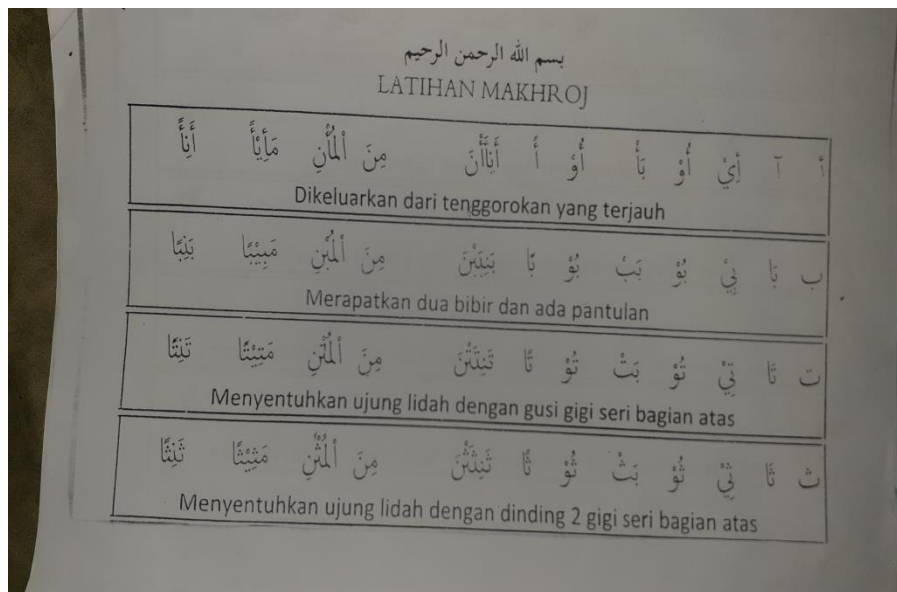 بسم الله الرحمن الرحيم
LATIHAN MAKHROJ
أ آ إِيْ أُوْ بَأْ أُوْ أً أَنِأَأْنَ مِنَ ٱلْمُأْنِ مَأِيْأً أَنِأً
Dikeluarkan dari tenggorokan yang terjauh
ب بَا بِيْ بُوْ بَبْ بُوْ بًا بَنِبَبْنَ مِنَ ٱلْمُبْنِ مَبِيْبًا بَنِبًا
Merapatkan dua bibir dan ada pantulan
ت تَا تِيْ تُوْ بَتْ تُوْ تًا تَنِتَتْنَ مِنَ ٱلْمُتْنِ مَتِيْتًا تَنِتًا
Menyentuhkan ujung lidah dengan gusi gigi seri bagian atas
ث ثَا ثِيْ ثُوْ بَثْ ثُوْ ثًا ثَنِثَثْنَ مِنَ ٱلْمُثْنِ مَثِيْثًا ثَنِثًا
Menyentuhkan ujung lidah dengan dinding 2 gigi seri bagian atas